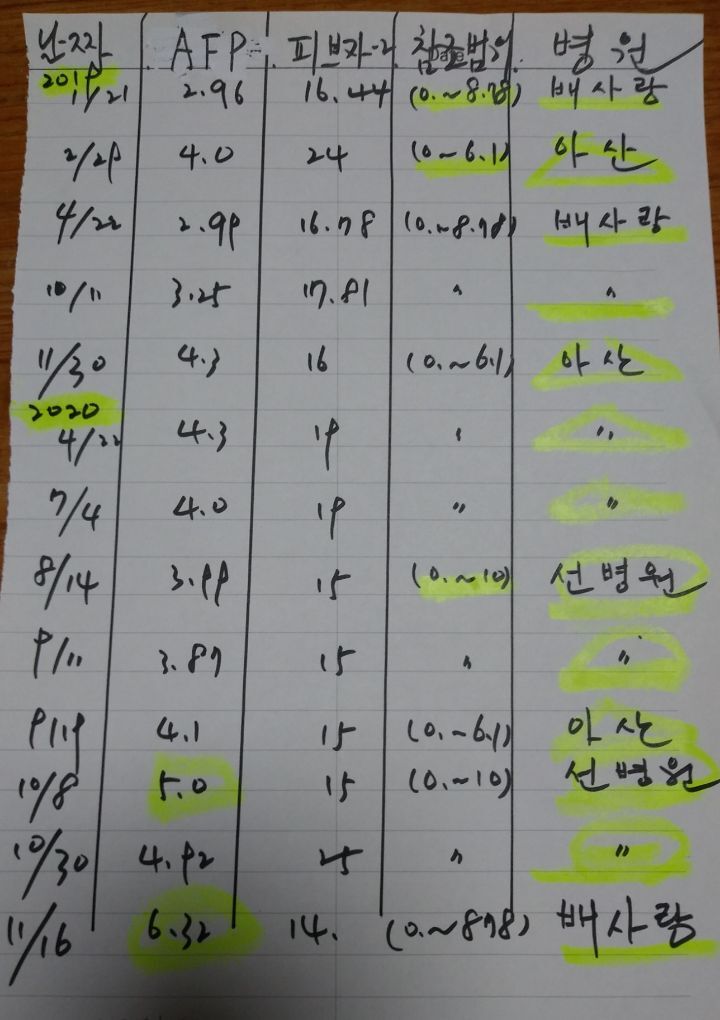 날짜 AFP 피브자-2 참조범위 병원
2019
1/21 2.96 16.44 (0.~8.78) 배사랑
2/29 4.0 24 (0~6.1) 아산
4/22 2.99 16.78 (0.~8.78) 배사랑
10/11 3.25 17.81 〃 〃
11/30 4.3 16 (0.~6.1) 아산
2020
4/22 4.3 19 〃 〃
7/4 4.0 19 〃 〃
8/14 3.99 15 (0.~10) 선병원
9/11 3.87 15 〃 〃
9/19 4.1 15 (0.~6.1) 아산
10/8 5.0 15 (0.~10) 선병원
10/30 4.92 25 〃 〃
11/16 6.32 14. (0.~878) 배사랑